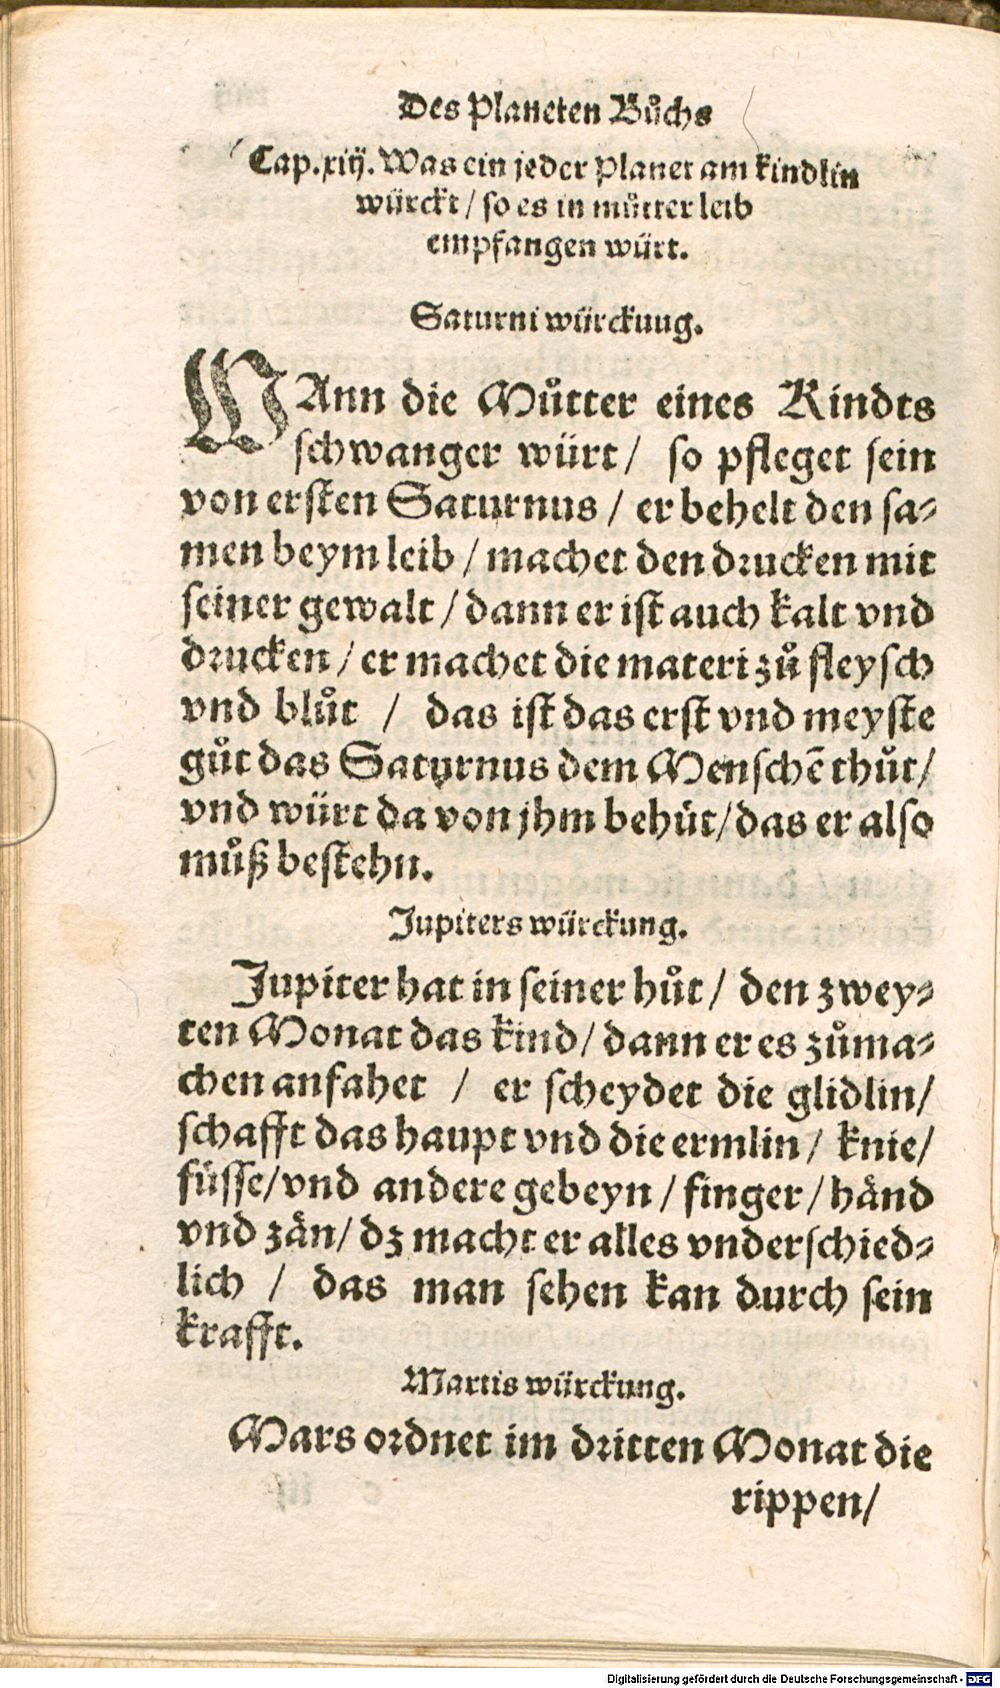 Des Planeten Bůchs
Cap. xiij. Was ein jeder Planet am kindlin
würckt / so es in můtter leib
empfangen würt.
Saturni würckung.
WAnn die Můtter eines Kindts
schwanger würt / so pfleget sein
von ersten Saturnus / er behelt den sa-
men beym leib / machet den drucken mit
seiner gewalt / dann er ist auch kalt vnd
drucken / er machet die materi zů fleysch
vnd blůt / das ist das erst vnd meyste
gůt das Saturnus dem Menschē thůt /
vnd würt da von jhm behüt / das er also
můß bestehn.
Jupiters würckung.
Jupiter hat in seiner hůt / den zwey-
ten Monat das kind / dann er es zůma-
chen anfahet / er scheydet die glidlin /
schafft das haupt vnd die ermlin / knie /
füsse / vnd andere gebeyn / finger / händ
vnd zän / dz macht er alles vnderschied-
lich / das man sehen kan durch sein
krafft.
Martis würckung.
Mars ordnet im dritten Monat die
rippen /
Digitalisierung gefördert durch die Deutsche Forschungsgemeinschaft - DFG